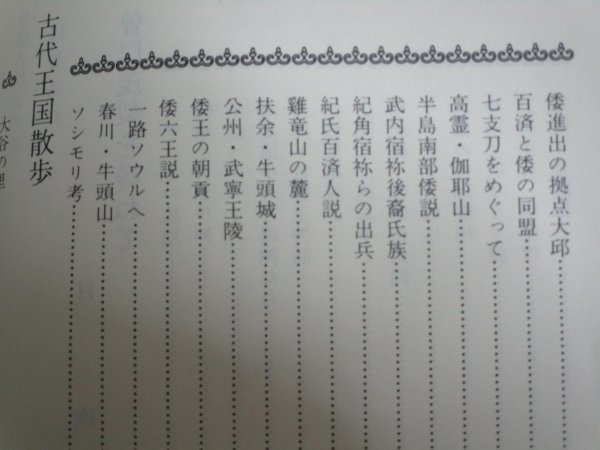 倭進出の拠点大邱
百済と倭の同盟
七支刀をめぐって
高霊・伽耶山
半島南部倭説
武内宿祢後裔氏族
紀角宿祢らの出兵
紀氏百済人説
雞竜山の麓
扶余・牛頭城
公州・武寧王陵
倭王の朝貢
倭六王説
一路ソウルへ
春川・牛頭山
ソシモリ考
古代王国散歩
大谷の里